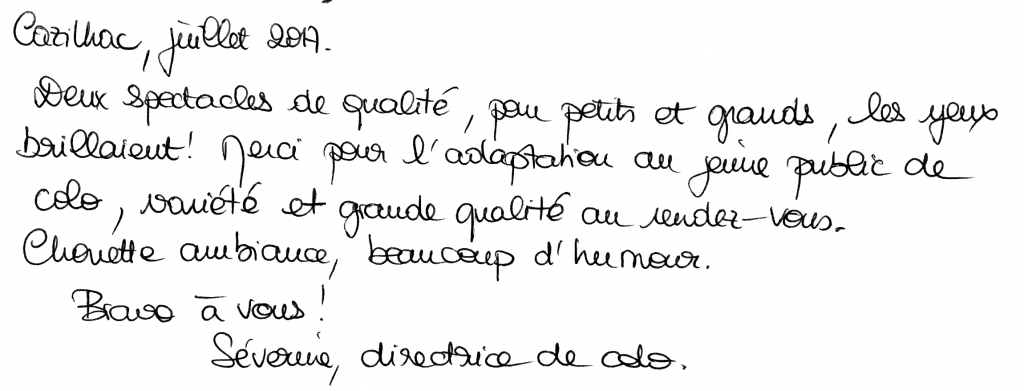 Cazilhac, juillet 2017.
Deux spectacles de qualité, pour petits et grands, les yeux
brillaient! Merci pour l'adaptation au jeune public de
colo, variété et grande qualité au rendez-vous.
Chouette ambiance, beaucoup d'humour.
Bravo à vous!
Séverine, directrice de colo.